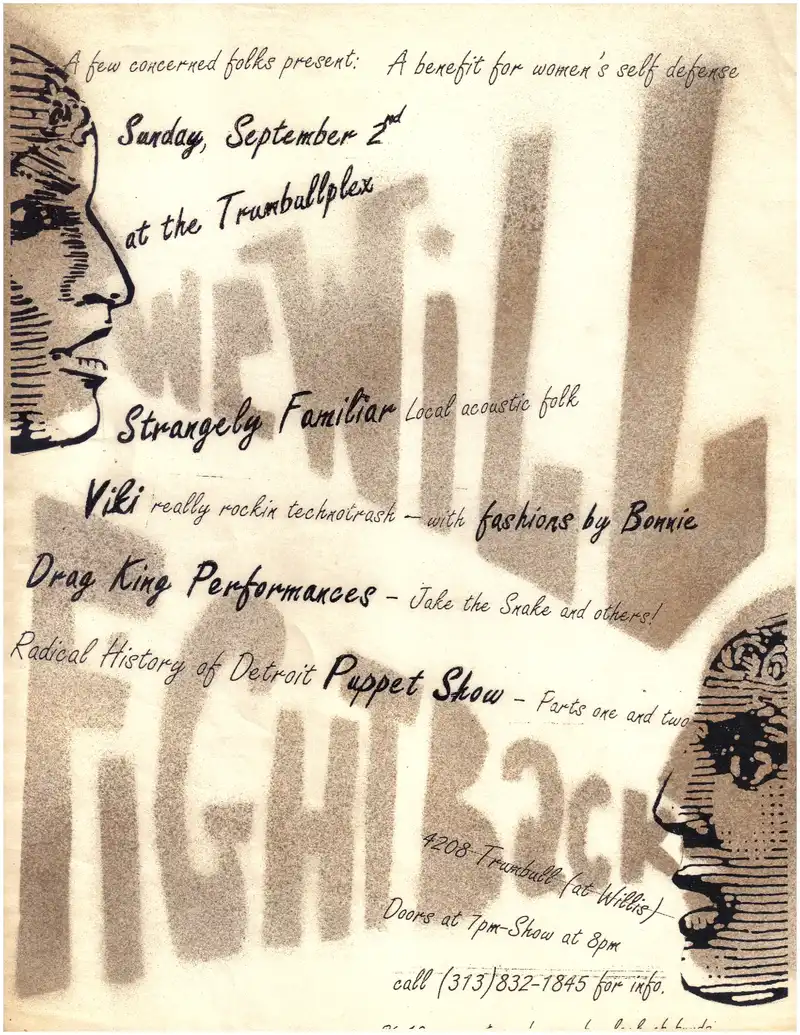 A few concerned folks present: A benefit for women's self defense
Sunday, September 2nd
at the Trumbullplex
WE WiLL
Strangely Familiar Local acoustic folk
Viki really rockin technotrash – with fashions by Bonnie
Drag King Performances – Jake the Snake and others!
Radical History of Detroit Puppet Show – Parts one and two
FiGHT BaCK
4208 Trumbull (at Willis)
Doors at 7pm-Show at 8pm
call (313)832-1845 for info.